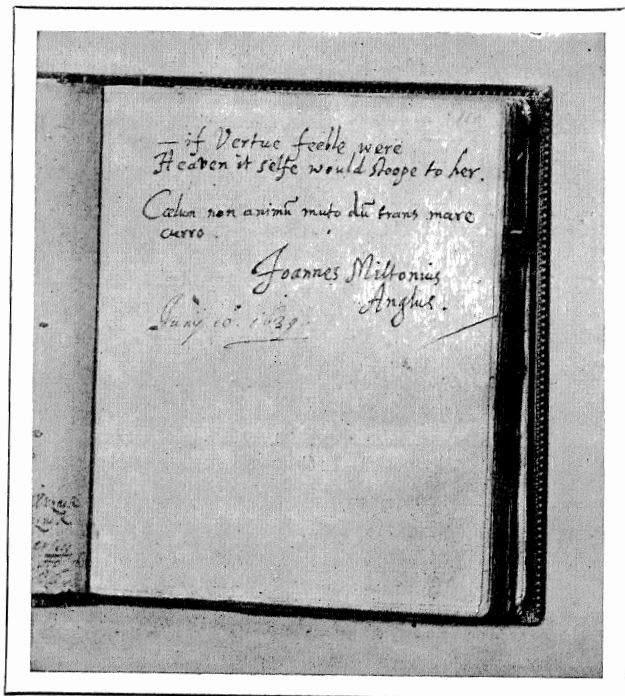 — if Vertue feeble were
Heaven it selfe would stoope to her.
Cœlum non animū muto dū trans mare
curro.
Joannes Miltonius
Anglus.
Junij 10. 1639.